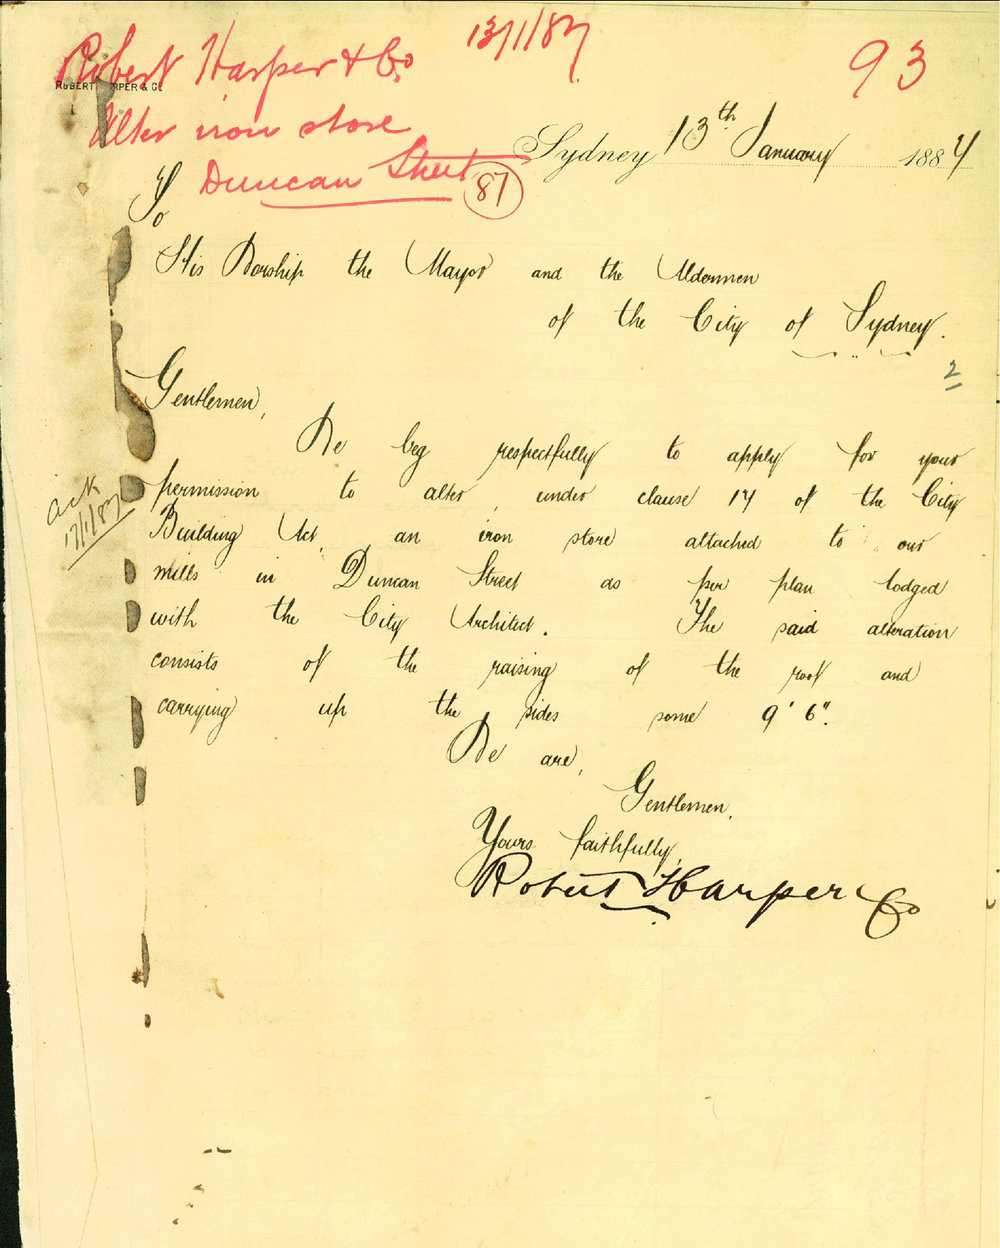 Robert Harper & Co
13/1/87
93
ROBERT HARPER & CO
Alter iron store
Duncan Street
87
Sydney 13th January 1887
To
His Worship the Mayor and the Aldermen
of the City of Sydney.
2
Gentlemen,
We beg respectfully to apply for your
permission to alter, under clause 17 of the City
Building Act, an iron store attached to our
mills in Duncan Street as per plan lodged
with the City Architect. The said alteration
consists of the raising of the roof and
carrying up the sides some 9' 6".
We are,
Gentlemen,
Yours faithfully,
Robert Harper & Co
ack
17/1/87